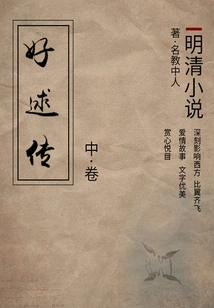 明清小说
著·名教中人
深刻影响西方 比翼齐飞
爱情故事 文字优美
赏心悦目
好逑传
中·卷